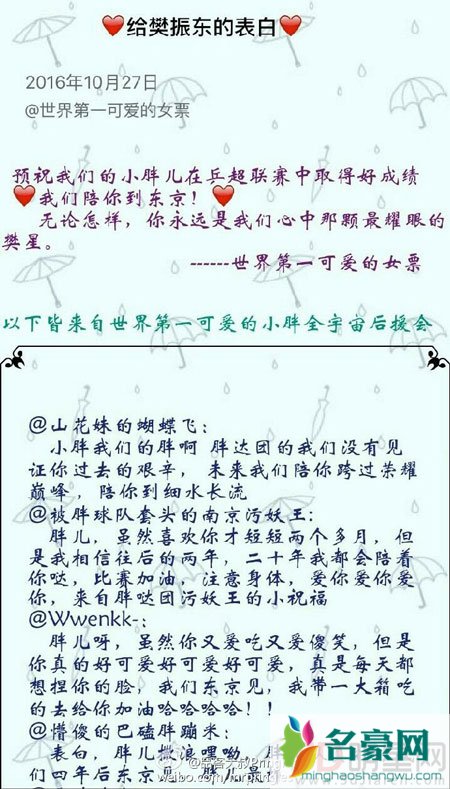 ❤给樊振东的表白❤
2016年10月27日
@世界第一可爱的女票
预祝我们的小胖儿在乒超联赛中取得好成绩
❤我们陪你到东京！❤
无论怎样，你永远是我们心中那颗最耀眼的
樊星。
------世界第一可爱的女票
以下皆来自世界第一可爱的小胖全宇宙后援会
@山花妹的蝴蝶飞：
小胖我们的胖啊 胖达团的我们没有见
证你过去的艰辛， 未来我们陪你跨过荣耀
巅峰，陪你到细水长流
@被胖球队套头的南京污妖王：
胖儿，虽然喜欢你才短短两个多月，但
是我相信往后的两年，二十年我都会陪着
你哒，比赛加油，注意身体，爱你爱你爱
你，来自胖哒团污妖王的小祝福
@Wwenkk-：
胖儿呀，虽然你又爱吃又爱傻笑，但是
你真的好可爱好可爱好可爱，真是每天都
想捏你的脸，我们东京见，我带一大箱吃
的去给你加油哈哈哈哈！！
@懵俊的巴磕胖蹦米：
表白，胖儿撒浪嘿呦，胖
们四年后东京见，胖儿最
weibo.com/
名豪网
minghaoshangwu.com